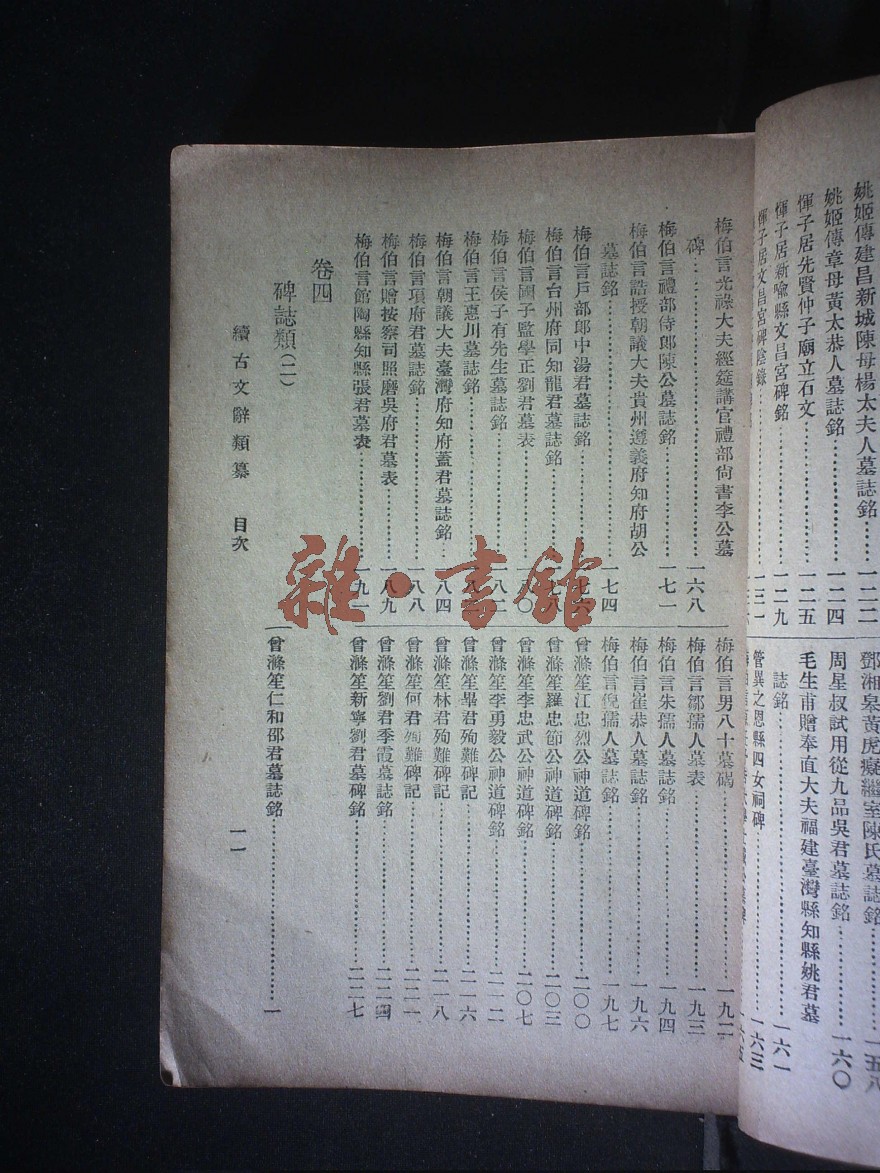 姚姬傳建昌新城陳母楊太夫人墓誌銘⋯⋯一二二
姚姬傳章母黃太恭人墓誌銘⋯⋯一二四
惲子居先賢仲子廟立石文⋯⋯一二五
惲子居新喻縣文昌宮碑銘⋯⋯一二九
惲子居文昌宮碑陰錄⋯⋯一三一
鄧湘皋黃虎癡繼室陳氏墓誌銘⋯⋯一五八
周星叔試用從九品吳君墓誌銘⋯⋯一六〇
毛生甫贈奉直大夫福建臺灣縣知縣姚君墓
誌銘⋯⋯一六一
管異之恩縣四女祠碑⋯⋯一六三
梅伯言光祿大夫經筵講官禮部尙書李公墓
碑⋯⋯一六八
梅伯言禮部侍郎陳公墓誌銘⋯⋯一七一
梅伯言誥授朝議大夫貴州遵義府知府胡公
墓誌銘⋯⋯一七四
梅伯言戶部郎中湯君墓誌銘⋯⋯一七六
梅伯言台州府同知龍君墓誌銘⋯⋯一七八
梅伯言國子監學正劉君墓表⋯⋯一八〇
梅伯言侯子有先生墓誌銘⋯⋯一八二
梅伯言王惠川墓誌銘⋯⋯
梅伯言朝議大夫臺灣府知府蓋君墓誌銘⋯⋯一八四
梅伯言項府君墓誌銘⋯⋯一八八
梅伯言贈按察司照磨吳府君墓表⋯⋯一八九
梅伯言館陶縣知縣張君墓表⋯⋯一九一
梅伯言男八十墓碣⋯⋯一九二
梅伯言鄒孺人墓表⋯⋯一九三
梅伯言朱孺人墓誌銘⋯⋯一九四
梅伯言崔恭人墓誌銘⋯⋯一九六
梅伯言倪孺人墓誌銘⋯⋯一九七
曾滌笙江忠烈公神道碑銘⋯⋯二〇〇
曾滌笙羅忠節公神道碑銘⋯⋯二〇三
曾滌笙李忠武公神道碑銘⋯⋯二〇七
曾滌笙李勇毅公神道碑銘⋯⋯二一二
曾滌笙畢君殉難碑記⋯⋯二一六
曾滌笙林君殉難碑記⋯⋯二一八
曾滌笙何君殉難碑記⋯⋯二二一
曾滌笙劉君季霞墓誌銘⋯⋯二二四
曾滌笙新寧劉君墓碑銘⋯⋯二二七
卷四
碑誌類(二)
曾滌笙仁和邵君墓誌銘⋯⋯一
續古文辭類纂 目次
一一
雜·書館